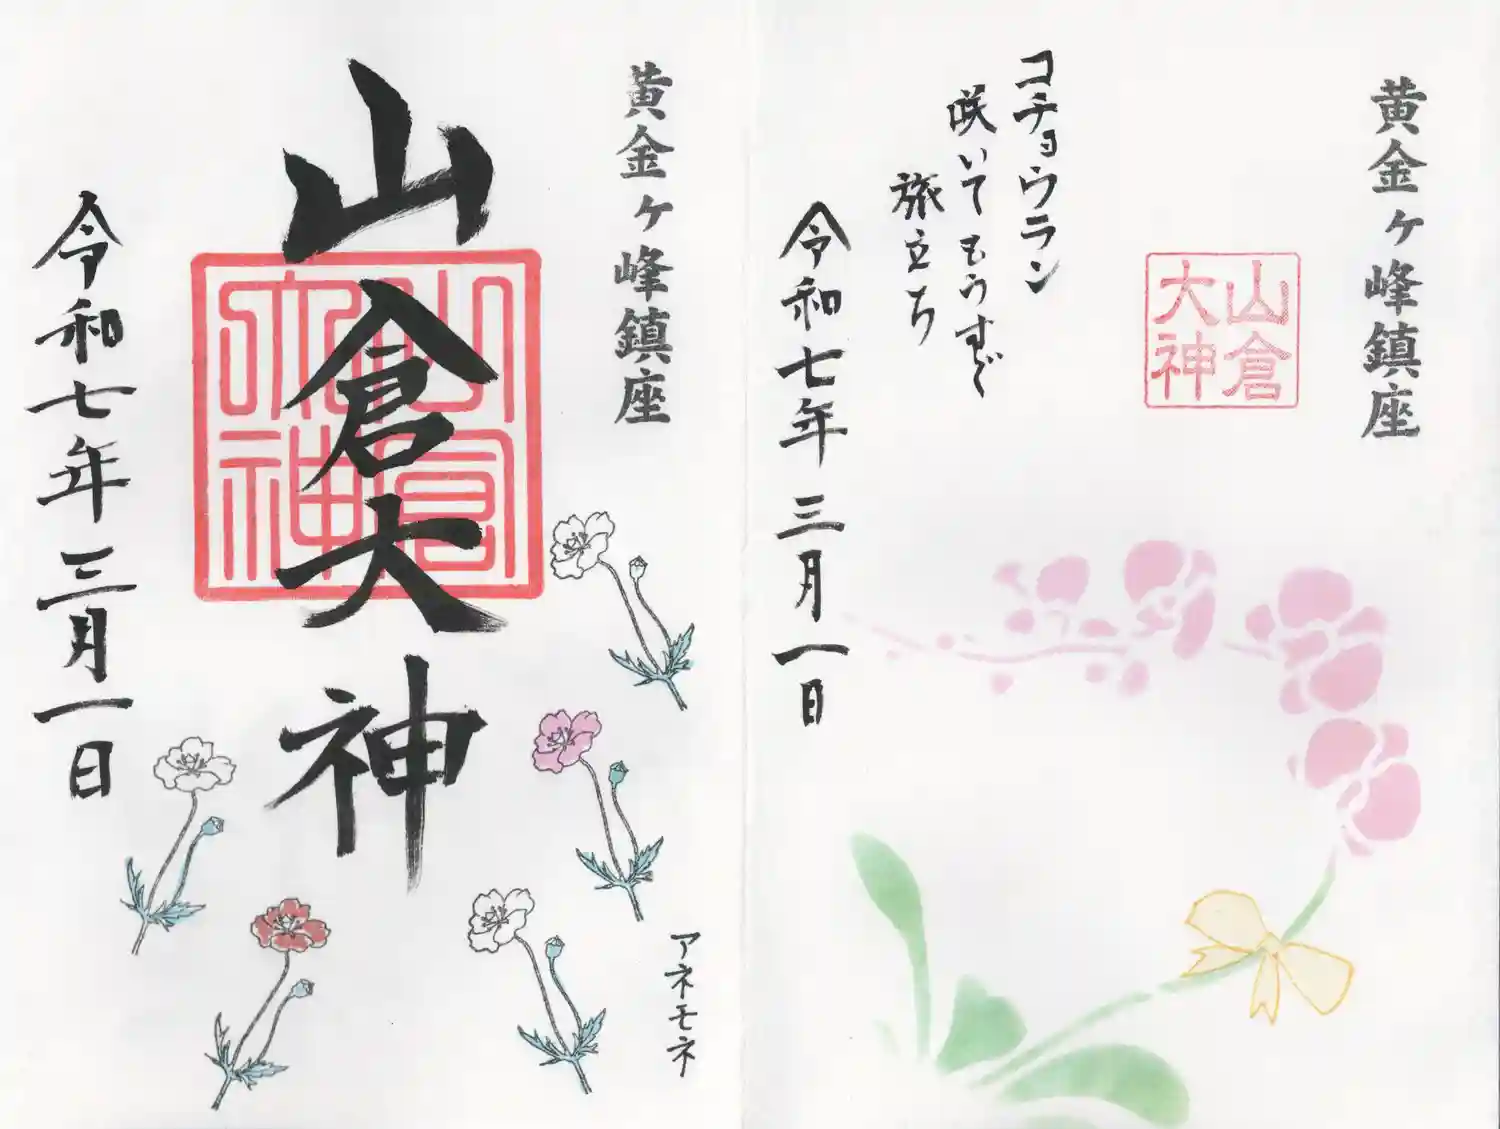 黄金ヶ峰鎮座
山倉大神
コチョウラン
咲いてもうすぐ
旅立ち
令和七年三月一日
黄金ヶ峰鎮座
山倉大神
山倉大神
令和七年三月一日
アネモネ